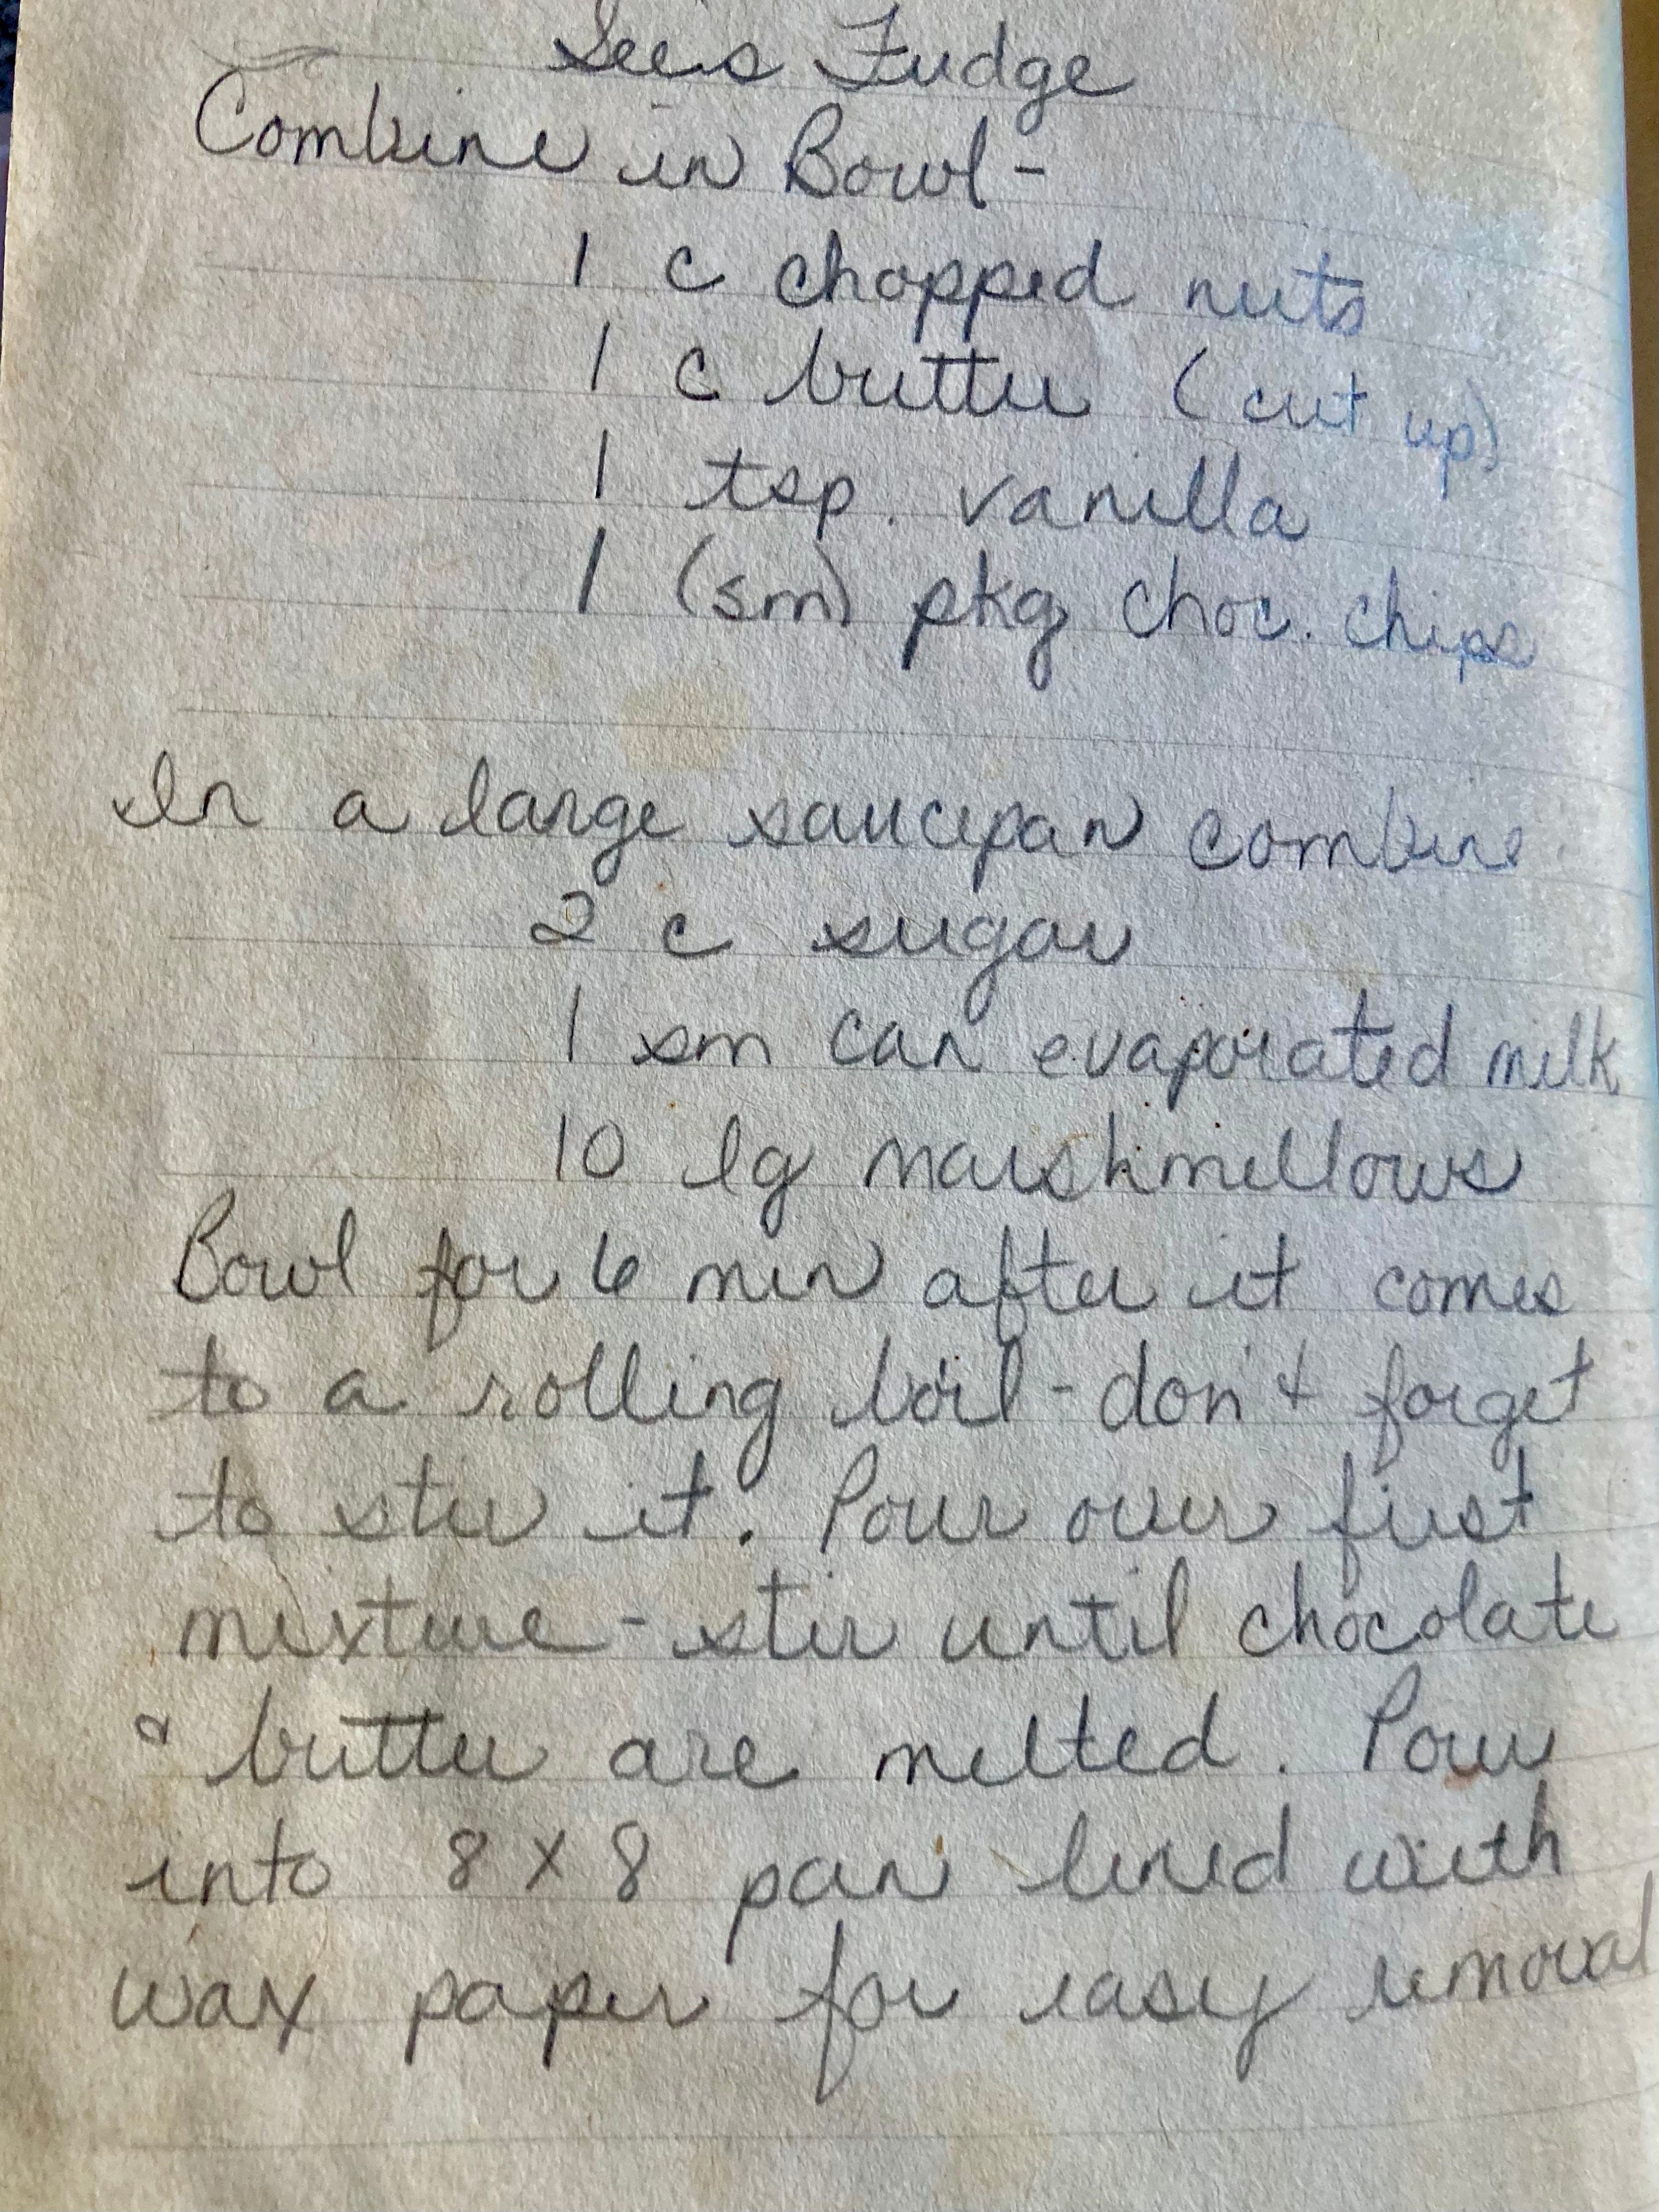 See's Fudge
Combine in Bowl -
1 c chopped nuts
1 c butter (cut up)
1 tsp. vanilla
1 (sm) pkg choc. chips
In a large saucepan combine
2 c sugar
1 sm can evaporated milk
10 lg marshmellows
Bowl for 6 min after it comes
to a rolling boil - don't forget
to stir it. Pour over first
mixture - stir until chocolate
& butter are melted. Pour
into 8 x 8 pan lined with
wax paper for easy removal